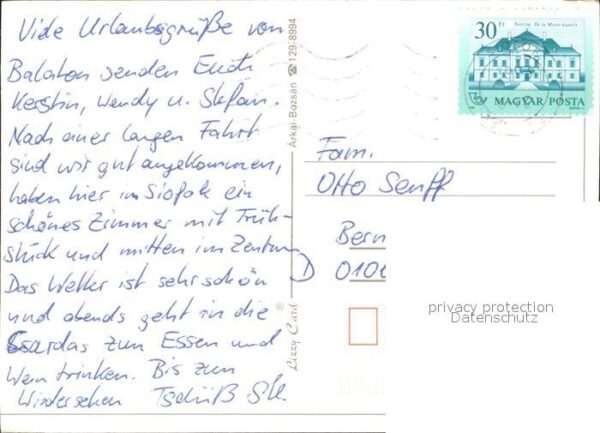 Viele Urlaubsgrüße von
Balaton senden Euch
Kerstin, Wendy u. Stefan.
Nach einer langen Fahrt
sind wir gut angekommen,
haben hier in Siofok ein
schönes Zimmer mit Früh-
stück und mitten im Zentrum
Das Wetter ist sehr schön
und abends geht in die
Csardas zum Essen und
Wein trinken. Bis zum
Wiedersehen Tschüß St.
Árkai-Bozsán ☎ 129-8994
® Lizzy Card
30 Ft
MAGYAR POSTA
Fam.
Otto Senff
Bern
D 0106
privacy protection
Datenschutz